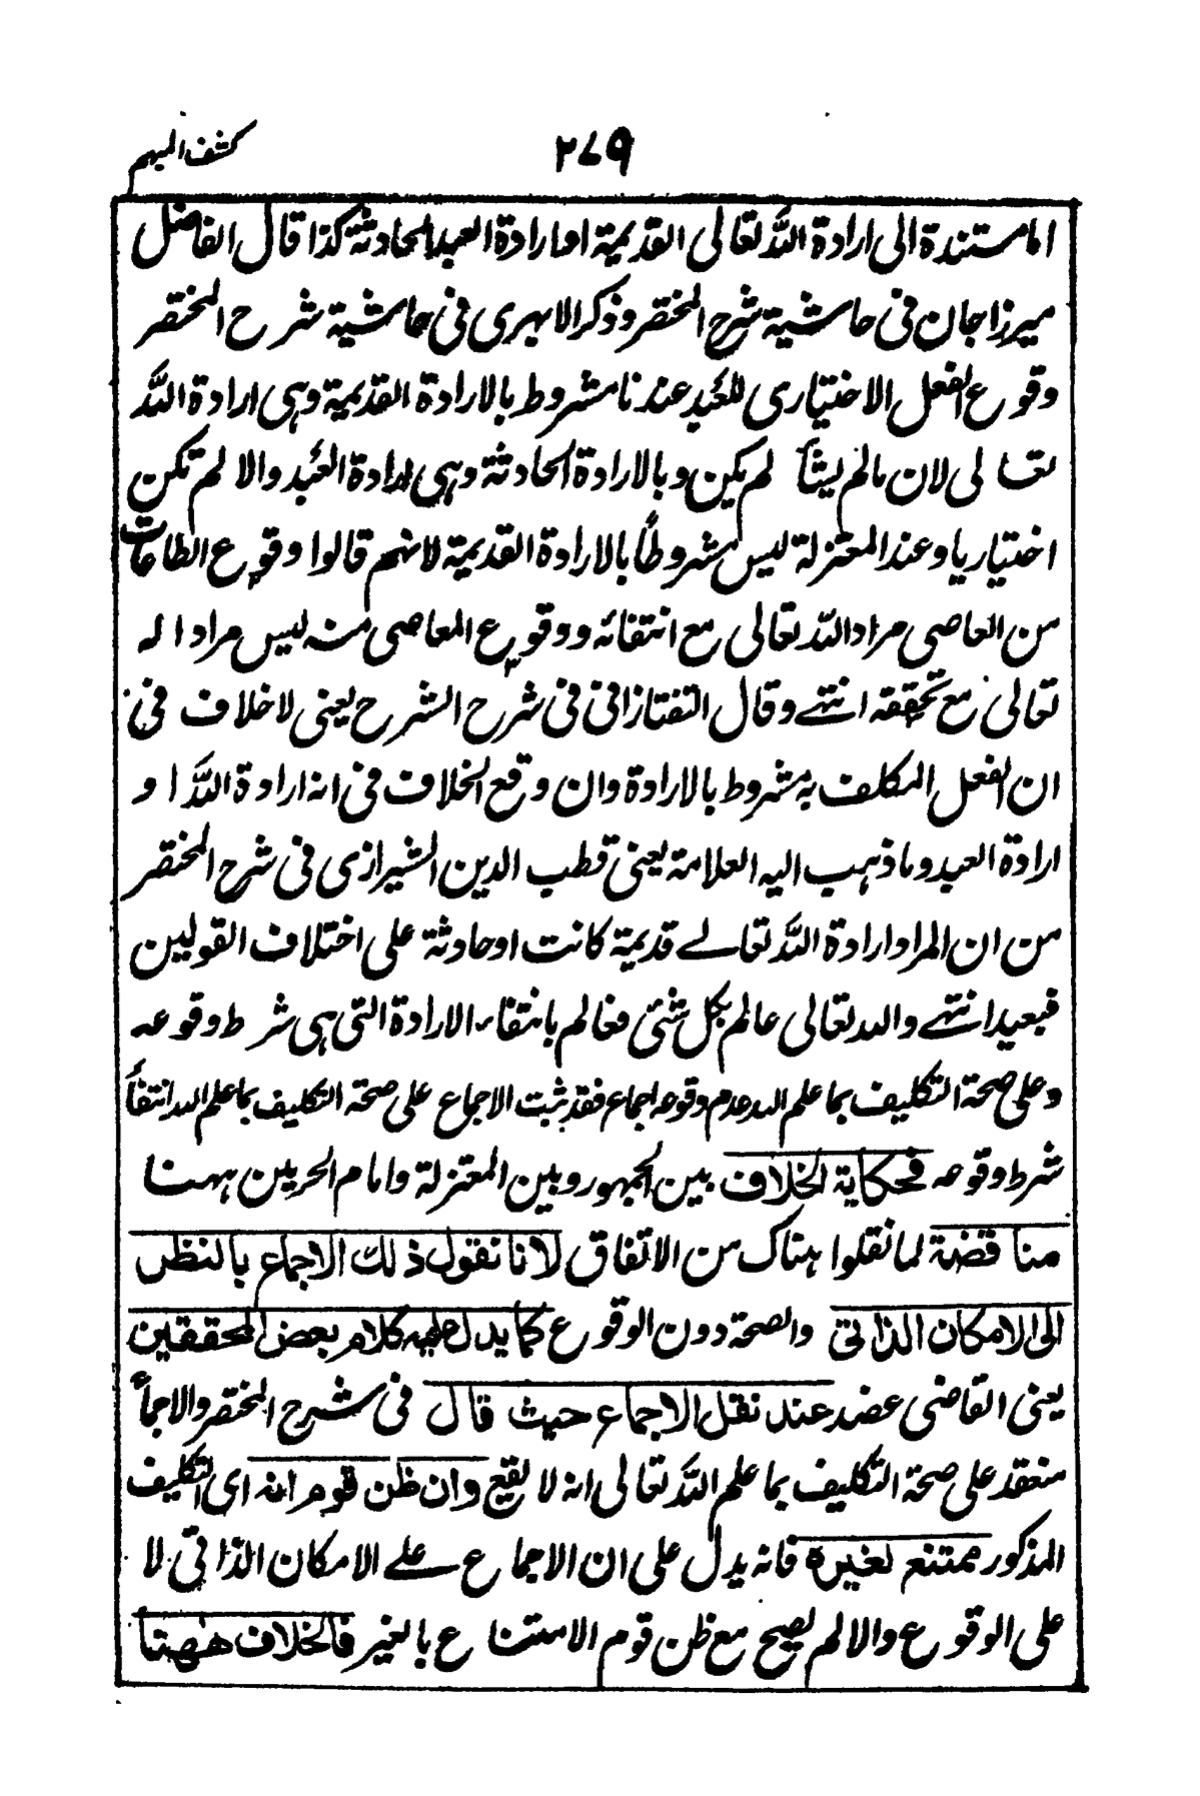 ٢٧٩
كشف المبهم
اما مستندة الى ارادة الله تعالى القديمة او ارادة العبد الحادثة كذا قال الفاضل
ميرزا جان فى حاشية شرح المختصر وذكر الابهرى فى حاشية شرح المختصر
وقوع الفعل الاختيارى للعبد عندنا مشروط بالارادة القديمة وهى ارادة الله
تعالى لان مالم يشأ لم يكن وبالارادة الحادثة وهى ارادة العبد والا لم تكن
اختياريا وعند المعتزلة ليس مشروطاً بالارادة القديمة لانهم قالوا وقوع الطاعات
من العاصى مراد الله تعالى مع انتفائه ووقوع المعاصى منه ليس مرادا له
تعالى مع تحققه انتهے وقال التفتازانى فى شرح الشرح يعنى لا خلاف فى
ان الفعل المكلف به مشروط بالارادة وان وقع الخلاف فى انه ارادة الله او
ارادة العبد وما ذهب اليه العلامة يعنى قطب الدين الشيرازى فى شرح المختصر
من ان المراد ارادة الله تعالے قديمة كانت او حادثة على اختلاف القولين
فبعيد انتهے والله تعالى عالم بكل شئى فعالم بانتفاء الارادة التى هى شرط وقوعه
وعلى صحة التكليف بما علم الله عدم وقوعه اجماع فقد ثبت الاجماع على صحة التكليف بما علم الله انتفأ
شرط وقوعه فحكاية الخلاف بين الجمهور وبين المعتزلة وامام الحرمين ههنا
مناقضة لما نقلوا هناك من الاتفاق لانا نقول ذلك الاجماع بالنظر
الى الامكان الذاتى والصحة دون الوقوع كما يدل عليه كلام بعض المحققين
يعنى القاضى عضد عند نقل الاجماع حيث قال فى شرح المختصر والاجماع
منعقد على صحة التكليف بما علم الله تعالى انه لا يقع وان ظن قوم انه اى التكليف
المذكور ممتنع لغيره فانه يدل على ان الاجماع علے الامكان الذاتى لا
على الوقوع والا لم يصح مع ظن قوم الامتناع بالغير فالخلاف ههنا